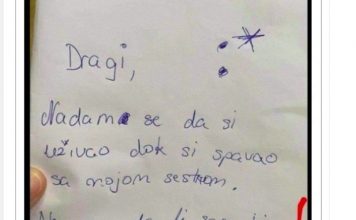 Dragi, :*
Nadam se da si
uživao dok si spavao
sa mojom sestrom.